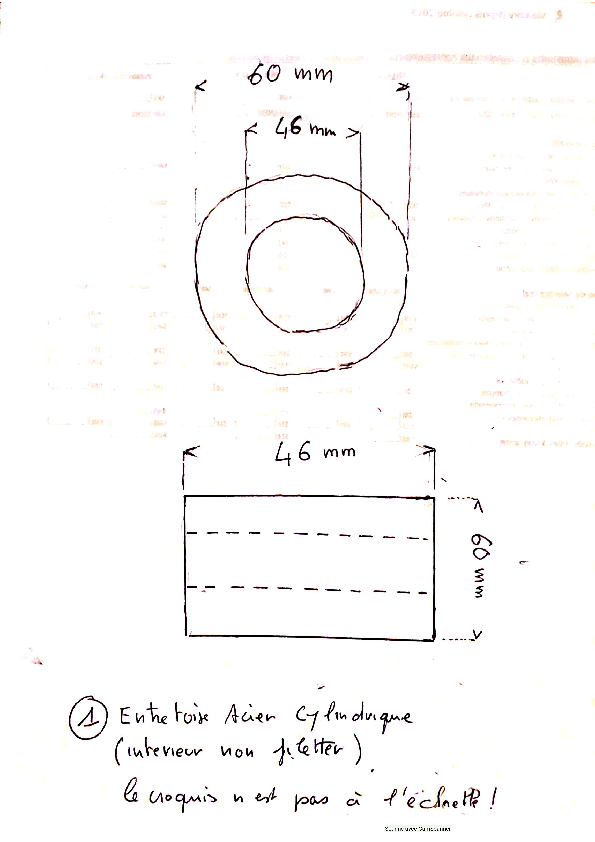 60 mm
46 mm
46 mm
60 mm
1 Entretoise Acier Cylindrique
(interieur non filetter)
le croquis n est pas à l'échelle !